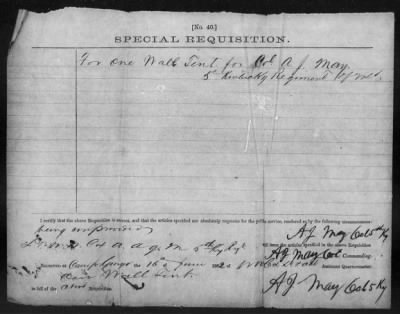 [No. 40.]
SPECIAL REQUISITION.
For One Wall Tent for Col A. J. May,
5th Kentucky Regiment
I certify that the above Requisition is correct, and that the articles specified are absolutely requisite for the public service, rendered so by the following circumstances:
being unprovided
A J May Col 5th Ky
will issue the articles specified in the above Requisition
A J May Col Commanding.
Received at Camp 16th June 1862
Assistant Quartermaster.
One Wall Tent
in full of the above Requisition.
A J May Col 5 Ky